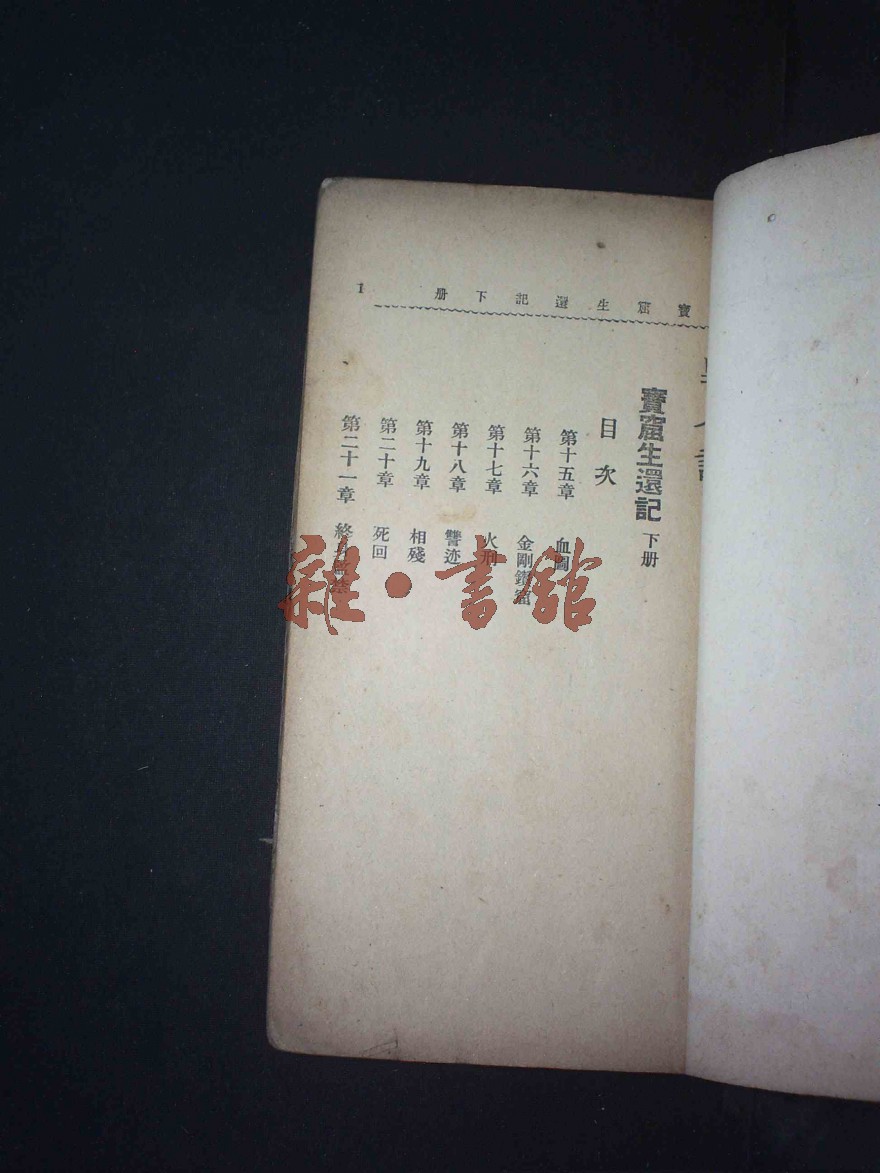 寶窟生還記下册
1
寶窟生還記 下册
目次
第十五章 血圖
第十六章 金剛鑽窟
第十七章 火刑
第十八章 讐迹
第十九章 相殘
第二十章 死回
第二十一章 終身監禁
雜·書館